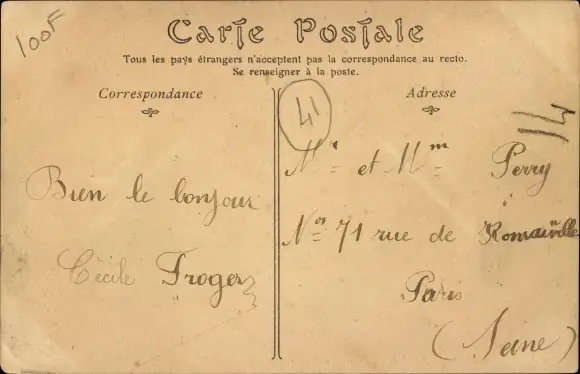 100F
Carte Postale
Tous les pays étrangers n'acceptent pas la correspondance au recto.
Se renseigner à la poste.
Correspondance
Adresse
41
14
Bien le bonjour
Cécile Froger
Mr et Mme Perry
Nos 71 rue de Romainville
Paris
(Seine)